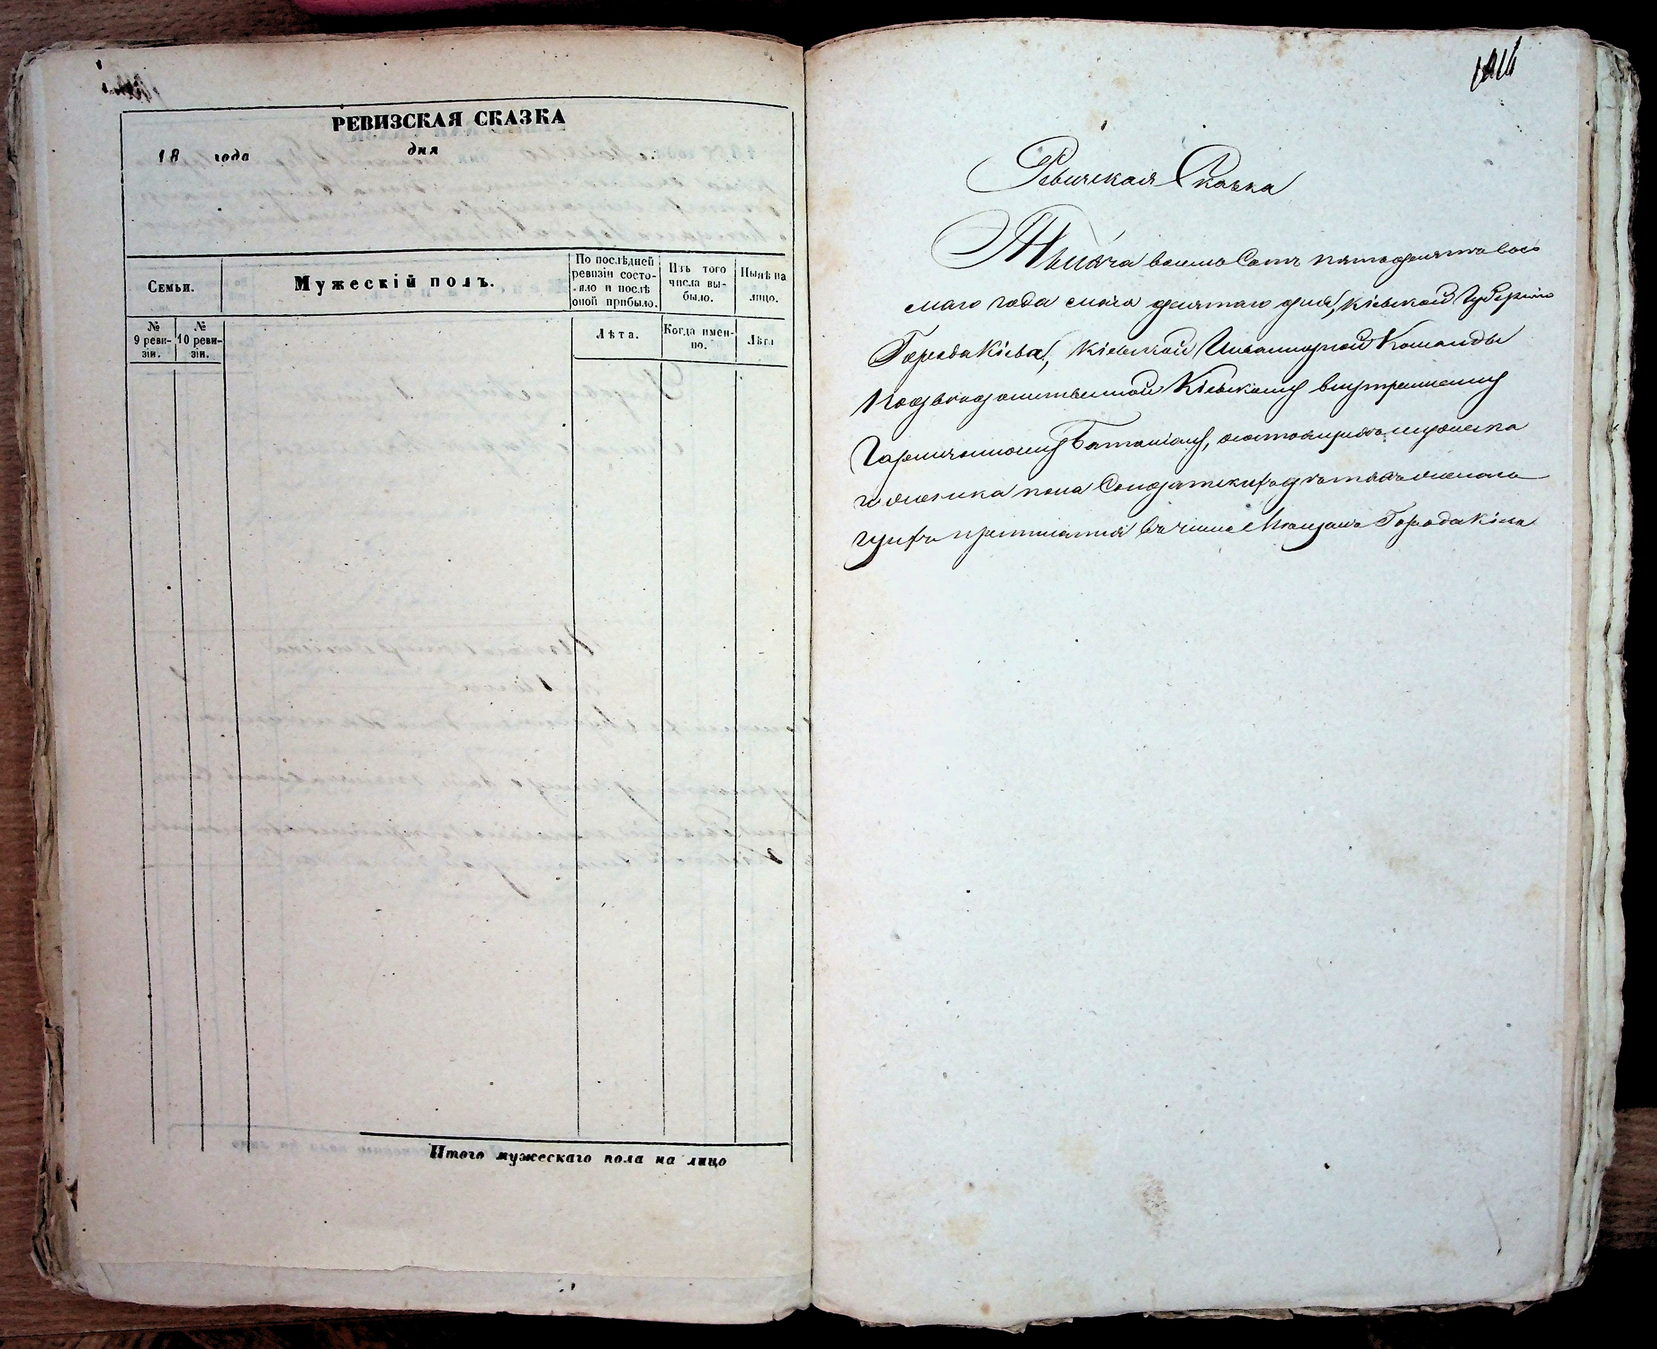 РЕВИЗСКАЯ СКАЗКА
18 года дня
Семьи.
Мужескій полъ.
По послѣдней ревизіи состояло и послѣ оной прибыло.
Изъ того числа выбыло.
Нынѣ на лицо.
№ 9 ревизіи.
№ 10 ревизіи.
Лѣта.
Когда именно.
Лѣта
Итого мужескаго пола на лицо
Ревизская Сказка
Тысяча восемь Сотъ пятьдесятъ вось
маго года мая девятаго дня, Кіевской Губерніи
Города Кіева, Кіевской Инвалидной Команды
Подведомственной Кіевскому внутреннему
Гарнизонному Баталіону, о состоящихъ мужеска
и женска пола Солдатскихъ детяхъ
въ числе Мещанъ Города Кіева